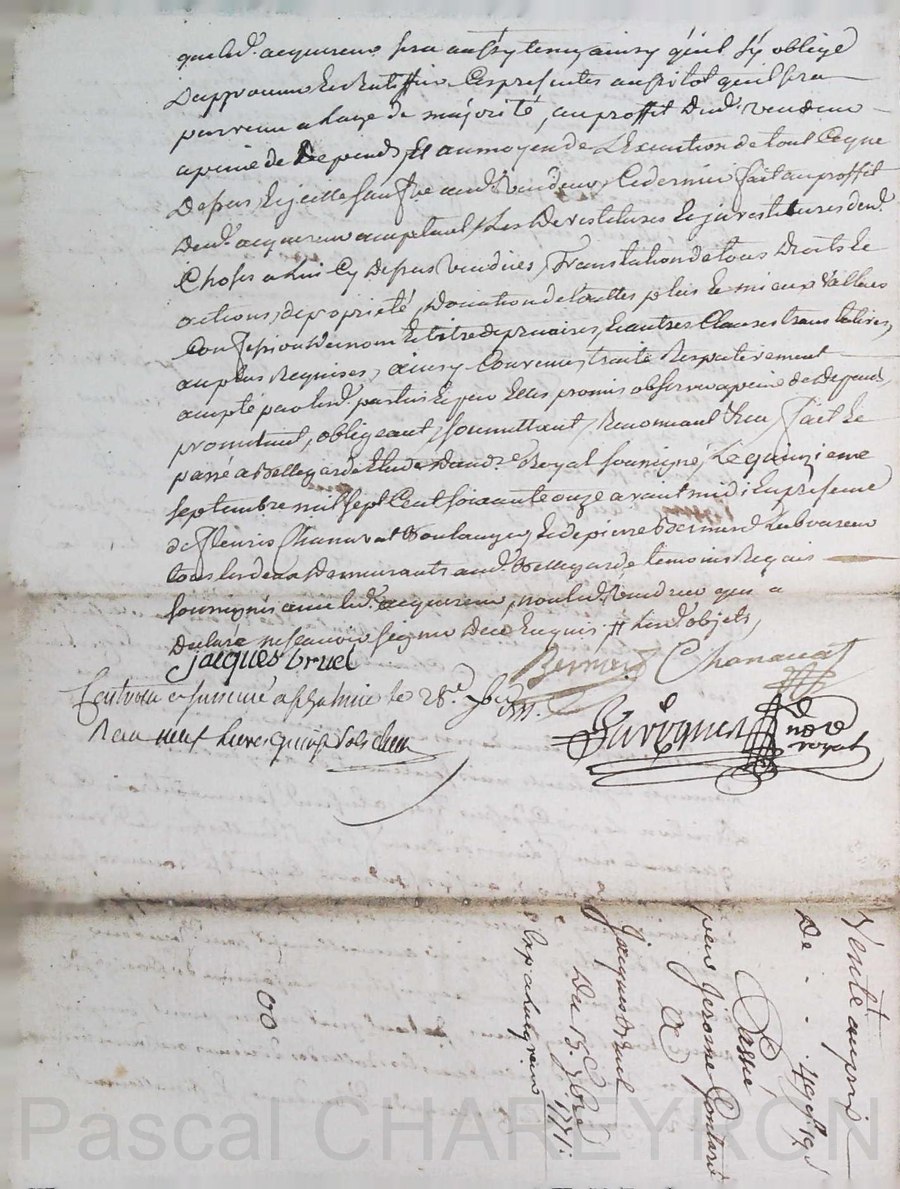 que led. acquereur sera aussy tenu ainsy qu'il s'y oblige
D'approuver et Ratiffier Ces presentes aussitot qu'il sera
parvenu a L'age de majorité, au proffit dud. vendeur
a peine de Depends, Et au moyen de L'Execution de tout Ce que
Depuis, Ce dernier fait au proffit
Dud. acquereur acceptant Les Devestitures Et jnvestitures des
Choses a Lui Cy Depuis vendues, Translation de tous Droits Et
actions, de proprieté, Donation de touttes plus Et mieux Vallues
Confession de nom Et titre de precaires, Et autres Clauses translatives,
au plus Requises, ainsy Convenu, traité Respectivement
accepté par lesd. parties Et par Elles promis observer a peine de Depends,
promettant, obligeant, soumettant, Renonceant fait Et
passé a Bellegarde Etude dud. no.re Royal soussigné, Le quinzieme
septembre mil sept Cent soixante onze avant midi En presence
de fleuris Chanavat Boulanger, Et de pierre Bernard Laboureur
tous les deux Demeurants aud. Bellegarde temoins Requis
soussignés avec led. acquereur, non led. vendeur qui a
Declaré ne sçavoir signer De ce Enquis
jacques bruel
Bernard Chanavat
Controllé et jnsinué a le 28.e
Reçu neuf Livres quinze sols
no.re
royal
Vente au prix
De - - - 49
Passée
par Jerome
A
Jacques Bruel
Du 15. 7bre 1771.